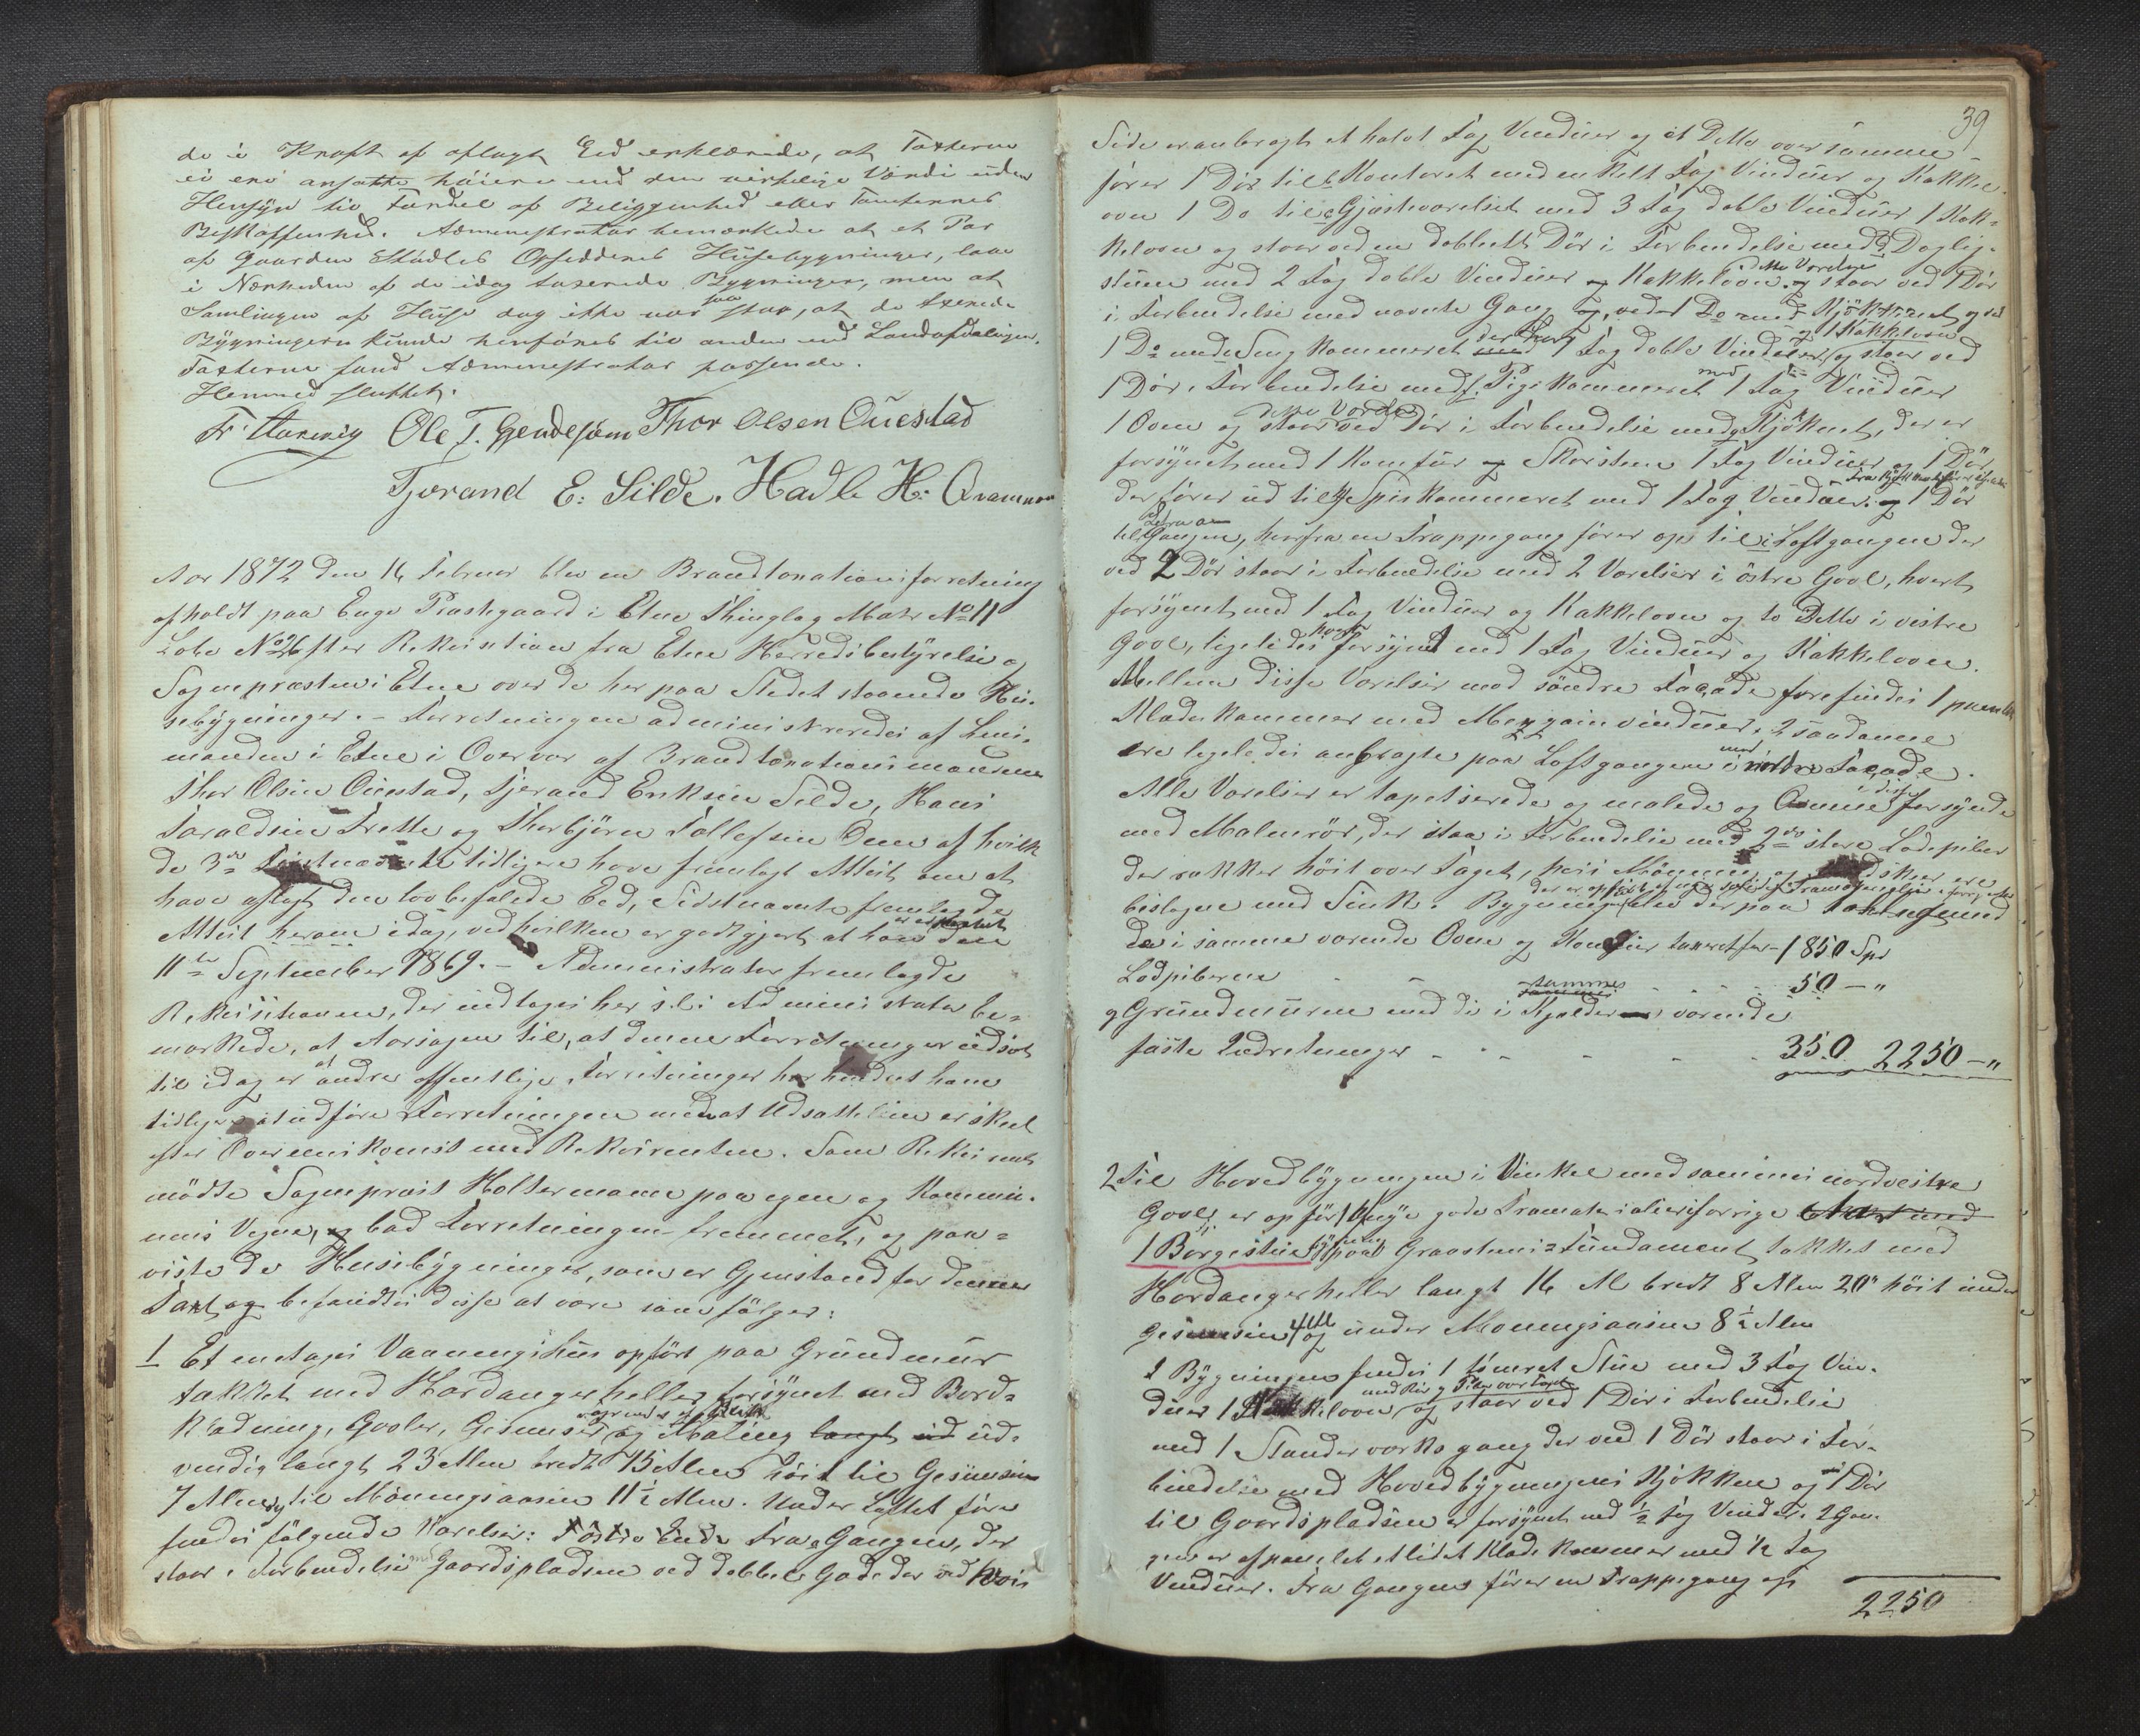 de i Kraft af aflagt Eed erklærede, at Taxterne
ei ere ansatte høiere end den virkelige Værdi uden
Hensyn til Fordel af Beliggenhed eller Tomternes
Beskaffenhed. Administrator bemærkede at et Par
af Gaarden Stødles Opsidderes Huusebygninger, laae
i Nærheden af de idag taxerede Bygninger, men at
Samlingen af Huse dog ikke var saa stor, at de taxerede
Bygningerne kunde henføres til anden end Landafdelingen.
Taxterne fandt Administrator passende.
Hermed sluttet.
Ole T. Gjerdesjøen Thor Olsen Qvestad
Tjerand E: Silde. Hadle H: Qvamme
Aar 1872 den 16 Februar blev en Brandtaxationsforretning
afholdt paa Enge Præstegaard i Etne Thinglag Matr No 11
Løbe No 26 efter Rekvisition fra Etne Herredsbestyrelse og
Sognepræsten i Etne over de her paa Stedet staaende Hu-
sebygninger. - Forretningen administreredes af Lens-
manden i Etne i Overvær af Brandtaxationsmændene
Thor Olsen Qvestad, Tjerand Eriksen Silde, Hans
Taraldsen Trette og Thorbjørn Tollefsen Øen af hvilke
de 3de førstnævnte tidligere have fremlagt Attest om at
have aflagt den lovbefalede Eed, Sidstnævnte fremlagde
Attest herom idag, ved hvilken er godtgjort at han den
11te September 1869. - Administrator fremlagde
Rekvisitionen, der indtages her s. l. Administrator be-
mærkede, at Aarsagen til, at denne Forretning er udsat
til idag er at andre offentlige Forretninger har hindret ham
tidligere at udføre Forretningen med at Udsættelsen er skeet
efter Overenskomst med Rekvirenten. Som Rekvirent
mødte Sognepræst Holtermann paa egne og Kommu-
nens Vegne, og bad Forretningen fremmet, og paa-
viste de Husebygninger, som er Gjenstand for denne
Taxt og befandtes disse at være som følger:
1 Et enetages Vaaningshus opført paa Grundmur
takket med Hardangerheller, forsynet med Bord-
klædning, Gavler, Gesimser og Maling langt ud ud-
vendig langt 23 Alen bredt 15 Alen høit til Gesimsen
7 Alen og til Mønningsaasen 11½ Alen. Under Loftet fore
findes følgende Værelser: I østre Ende Fra a Gangen, der
staar i Forbindelse med Gaardspladsen ved dobbelt Gadedør ved hvis
39
Side er anbragt et halvt Fag Vinduer og et Ditto over samme
fører 1 Dør til b Kontoret med enkelt Fag Vinduer og Kakkel-
ovn 1 Do til c Gjæsteværelset med 3 Fag doble Vinduer 1 Kak-
kelovn og staar ved en dobbelt Dør i Forbindelse med d Daglig-
stuen med 2 Fag doble Vinduer og Kakkelovn. dette Værelse og staar ved 1 Dør
i Forbindelse med nævnte Gang og, ved 1 Do med Kjøkkenet og ved
1 Do med e Sengkammeret der har med 1 Fag doble Vinduer og 1 Kakkelovn og staar ved
1 Dør i Forbindelse med f. Pigekammeret med 1 Fag Vinduer
1 Ovn og dette Værelse staar ved Dør i Forbindelse med g Kjøkkenet, der er
forsynet med 1 Komfur og Skorsten 1 Fag Vinduer og 1 Dør
der fører ud til h Spiskammeret med 1 Fag Vinduer. og 1 Dør
til Gangen, hvorfra en Trappegang fører op til i Loftgangen der
ved 2 Dør staar i Forbindelse med 2 Værelser i østre Gavl, hvert
forsynet med 1 Fag Vinduer og Kakkelovn og to Ditto i vestre
Gavl, ligeledes hvert forsynet med 1 Fag Vinduer og Kakkelovn.
Mellem disse Værelser mod søndre Façade forefindes 1 panelet
Klædekammer med Mezzaninvinduer, 2 saadanne
ere ligeledes anbragte paa Loftgangen i mod nordre Façade.
Alle Værelser er tapetserede og malede og Ovnene i disse forsynede
med Malmrør, der staa i Forbindelse med 2de større Ladepiber
der rækker høit over Taget, hvis Mønning og Vindskeer ere
beslagne med Sink. Bygningen blev derpaa takseret med
de i samme værende Ovne og Komfur taxeret for - 1850 Spd
Ladpiberne - - - 50 - "
og Grundmuren med de i Kjælder sammes værende
faste Indretninger - - - 350. 2250 - "
2 Til Hovedbygningen i Vinkel med sammes nordvestre
Gavl, er opført af nye gode Træmaterialier i forrige Aar med
1 Borgestuebygning paa Graastens-Fundament takket med
Hardangerheller langt 16 Al bredt 8 Alen 20" høit under
Gesimsen 4 Al og under Mønningsaasen 8½ Alen
I Bygningen findes 1 tømret Stue med 3 Fag Vin-
duer 1 Kakkelovn med Rør og Piber over Taget og staar ved 1 Dør i Forbindelse
med 1 Standerværksgang der ved 1 Dør staar i For-
bindelse med Hovedbygningens Kjøkken og 1 Dør
til Gaardspladsen er forsynet med ½ Fag Vinduer. I Gan-
gen er afpanelet et lidet Klædekammer med ½ Fag
Vinduer. Fra Gangen fører en Trappegang op
2250